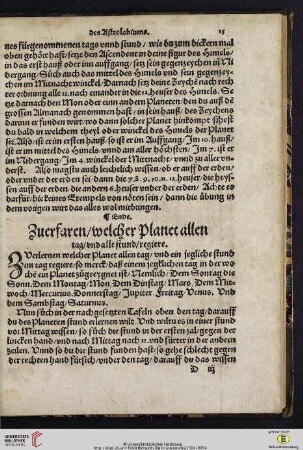 des Astrolabiums. 15
nes fürgenommenen tags vnnd stund / wie du zum dickern mal
oben gehört hast / setze den Ascendent in deine figur des Himels /
in das erst hauß oder inn auffgang / setz sein gegenzeychen in Ni
dergang / Süch auch das mittel des Himels vnd sein gegenzey-
chen im Mitnacht winckel. Darnach setz deine Zeych nach rech
ter ordnung alle in nach einander in die 12. heuser des Himels. Se
tze darnach den Mon oder einn andern Planeten / den du auß dē
grossen Almanach genommen hast / in sein hauß / des Zeychens
darinn er funden wirt / wo dann solcher Planet hinkompt sihest
du bald in welchem theyl oder winckel des Himels der Planet
sei. Also / ist er im ersten hauß / so ist er im Auffgang / Im 10. hauß /
ist er im mittel des Himels / vnnd am aller höchsten / Im 7. ist er
im Nidergang / Im 4. winckel der Mitnacht / vnnd zu aller vn-
derst. Also magstu auch leichtlich wissen / ob er auff der erden /
oder vnder der erden sei / dann die 7. 8. 9. 10. 11. 12. heuser / die heys-
sen auff der erden / die andern 6. heuser vnder der erden / Achte es
darfür / hie keines Exempels von nöten sein / dann die übung in
dem vorigen wirt das alles wol mitbringen.
¶ Ende.
Zuerfaren / welcher Planet allen
tag / vnd alle stund / regiere.
ZVerlernen welcher Planet allen tag / vnd ein jegliche stund
im tag regiere / so merck / daß einem jeglichen tag in der wo
chē ein Planet zügeeygnet ist / Nemlich / Dem Sontag die
Sonn. Dem Montag / Mon. Dem Dinstag / Mars. Dem Mit-
woch / Mercurius. Donnerstag / Jupiter. Freitag / Venus. Vnd
dem Sambstag / Saturnus.
Nun süch in der nach gesetzten Tafeln oben den tag / darauff
du des Planeten stund erlernen wilt. Vnd wiltu es in einer stund
vor Mittag wissen / so süch die stund in der ersten zal / gegen der
lincken hand / vnd nach Mittag nach 12. vnd fürter in der andern
zeilen. Vnnd so du die stund funden hast / so gehe schlecht gegen
der rechten hand fürsich / vnder den tag / darauff du das wissen
D iij
UNIVERSITÄTS-
BIBLIOTHEK
HEIDELBERG
© Universitätsbibliothek Heidelberg